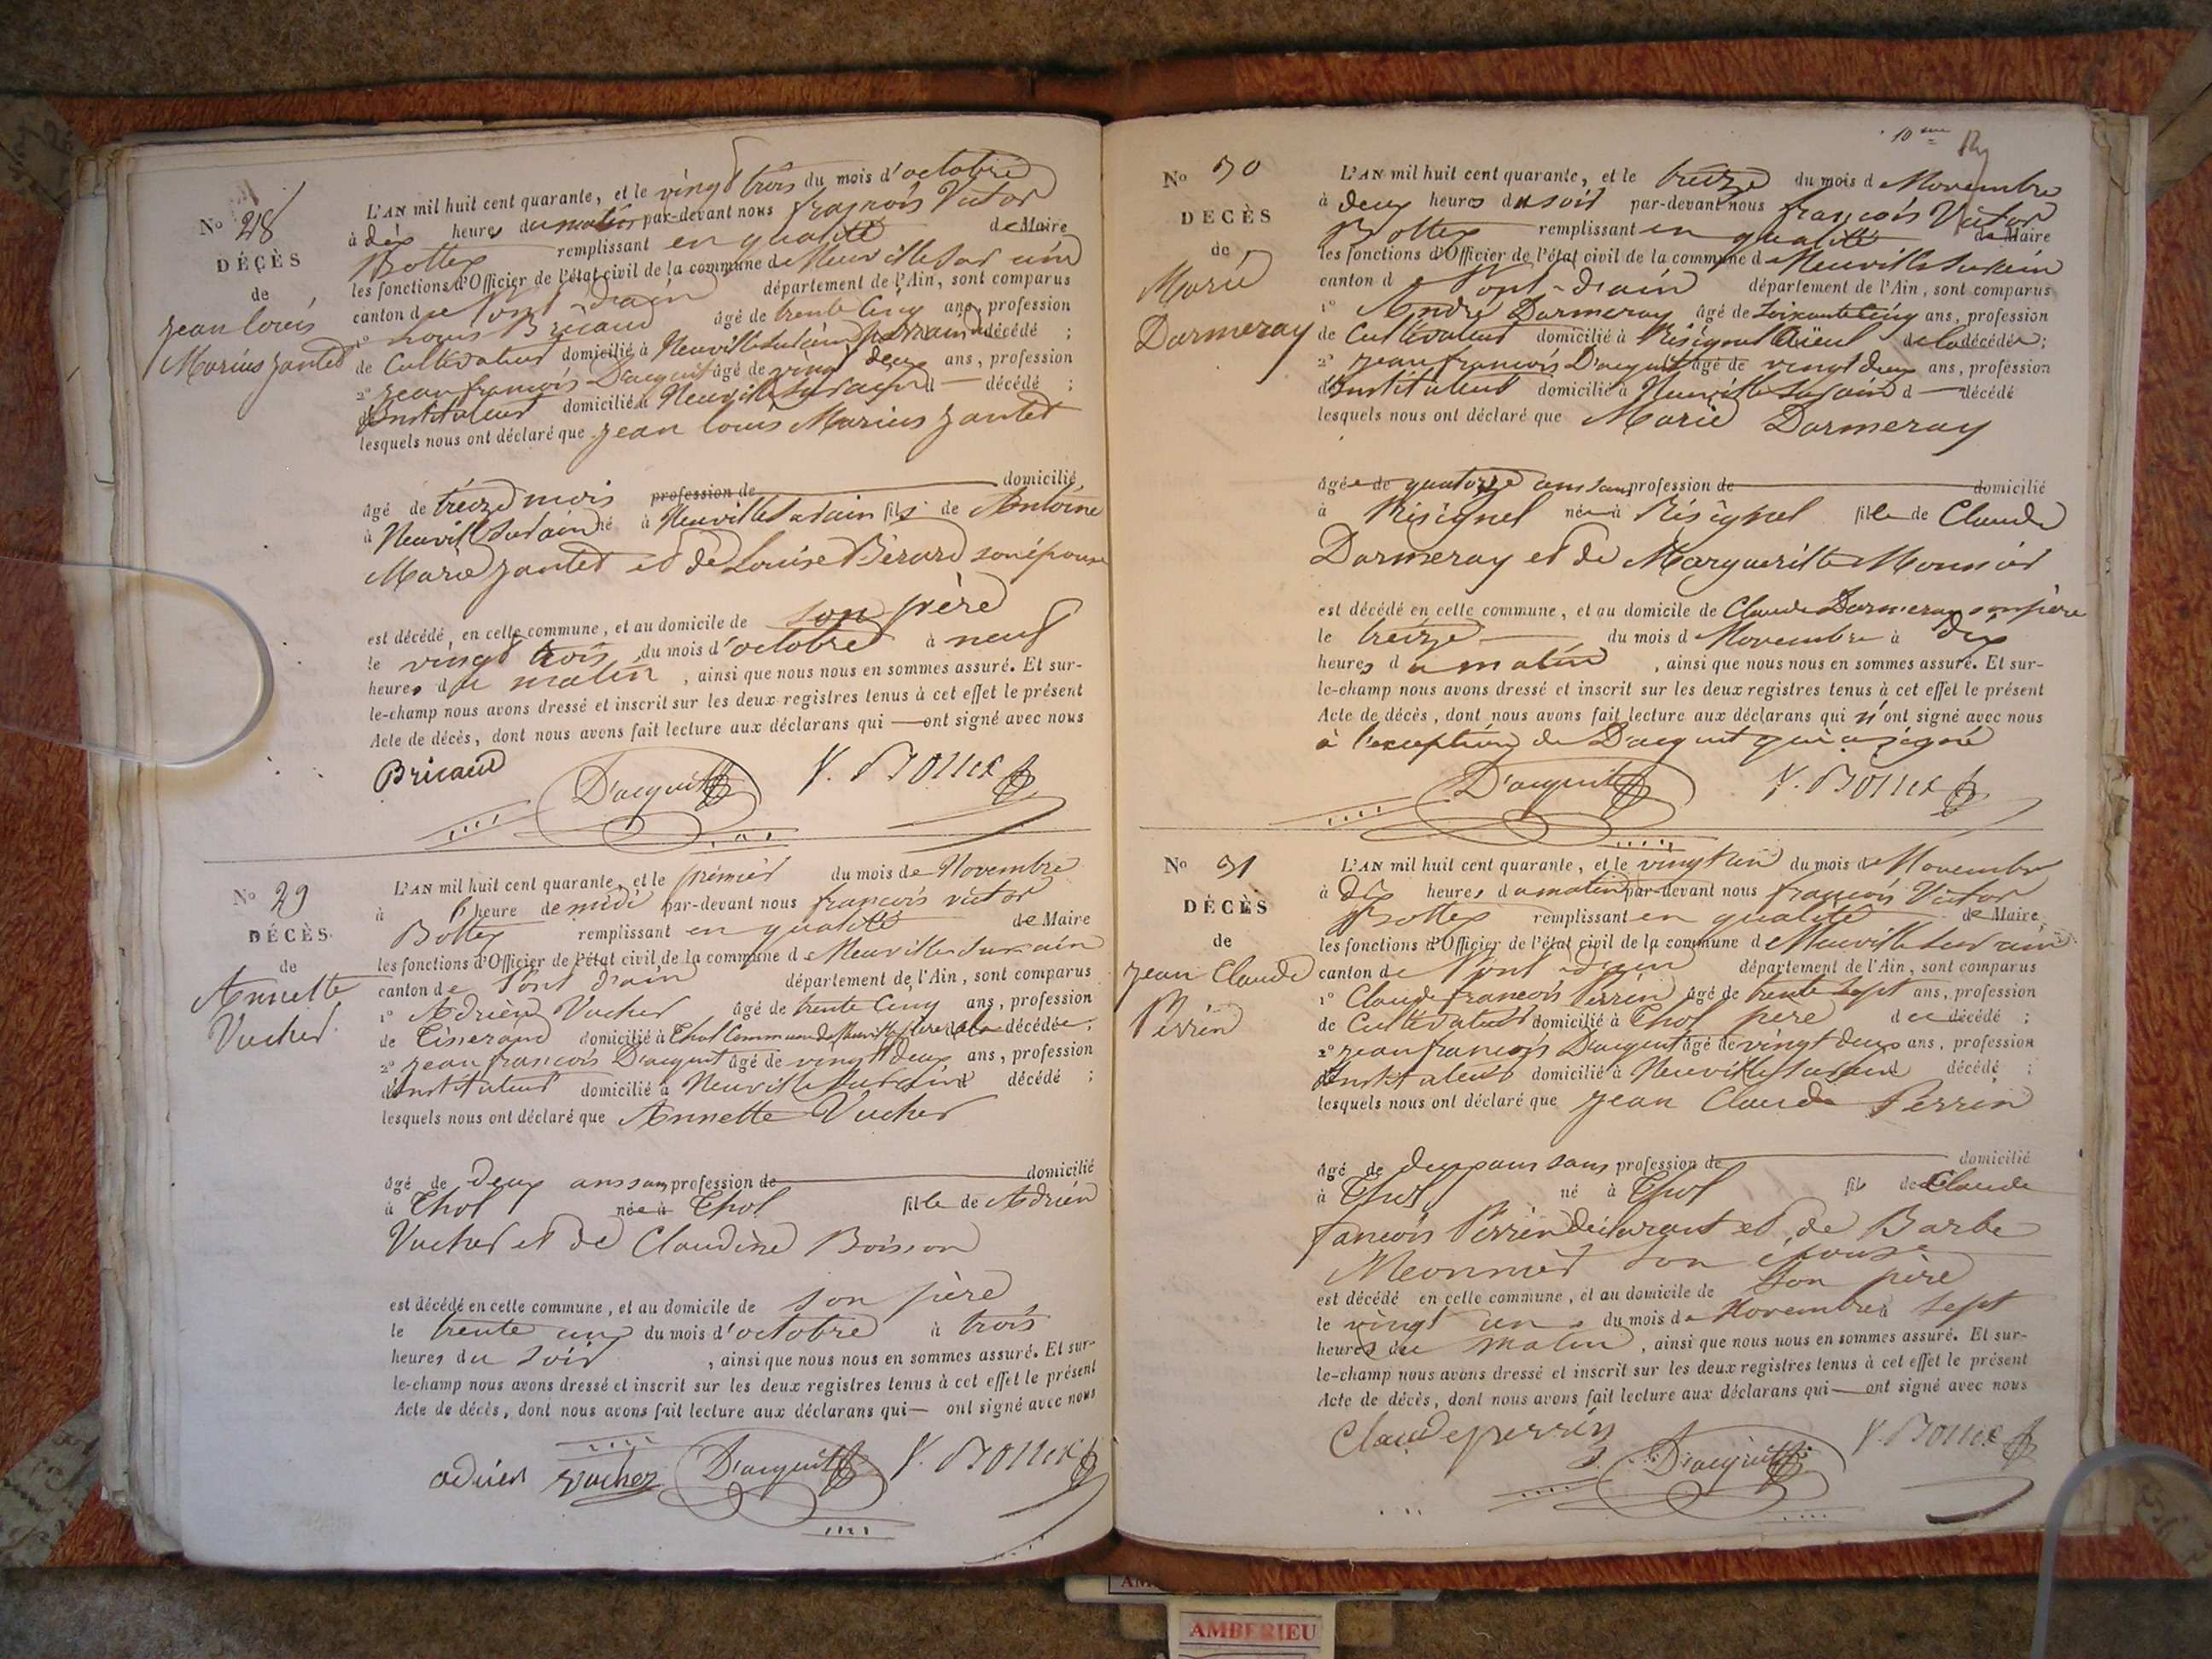 No 28
DÉCÈS
de
jean louis
Marius jantet
L'AN mil huit cent quarante, et le vingt trois du mois d'octobre
à dix heures du matin par-devant nous françois Victor
Bottex remplissant en qualité de Maire
les fonctions d'Officier de l'état civil de la commune de Neuville sur ain
canton de Pont-d'ain département de l'Ain, sont comparus
1° Louis Bricaud âgé de trente cinq ans, profession
de Cultivateur domicilié à Neuville sur ain parrain du décédé ;
2° jean françois D'acquit âgé de vingt deux ans, profession
d'Instituteur domicilié à Neuville sur ain d — décédé ;
lesquels nous ont déclaré que jean louis Marius jantet
âgé de treize mois profession de domicilié
à Neuville sur ain né à Neuville sur ain fils de Antoine
Marie jantet et de Louise Bérard son épouse
est décédé en cette commune, et au domicile de son père
le vingt trois du mois d'octobre à neuf
heures du matin, ainsi que nous nous en sommes assuré. Et sur-
le-champ nous avons dressé et inscrit sur les deux registres tenus à cet effet le présent
Acte de décès, dont nous avons fait lecture aux déclarans qui — ont signé avec nous
Bricaud D'acquit V. Bottex
No 29
DÉCÈS
de
Annette
Vucher
L'AN mil huit cent quarante, et le premier du mois de Novembre
à heure de midi par-devant nous françois victor
Bottex remplissant en qualité de Maire
les fonctions d'Officier de l'état civil de la commune de Neuville sur ain
canton de Pont d'ain département de l'Ain, sont comparus
1° Adrien Vucher âgé de trente cinq ans, profession
de Tisserand domicilié à Thol Commune de Neuville père de la décédée ;
2° jean françois D'acquit âgé de vingt deux ans, profession
d'Instituteur domicilié à Neuville sur ain d décédé ;
lesquels nous ont déclaré que Annette Vucher
âgé de deux ans sans profession de domicilié
à Thol née à Thol fille de Adrien
Vucher et de Claudine Boisson
est décédé en cette commune, et au domicile de son père
le trente un du mois d'octobre à trois
heures du soir, ainsi que nous nous en sommes assuré. Et sur-
le-champ nous avons dressé et inscrit sur les deux registres tenus à cet effet le présent
Acte de décès, dont nous avons fait lecture aux déclarans qui — ont signé avec nous
adrien vucher D'acquit V. Bottex
10eme
No 30
DECÈS
de
Marie
Darmeray
L'AN mil huit cent quarante, et le treize du mois d Novembre
à deux heures du soir par-devant nous françois Victor
Bottex remplissant en qualité de Maire
les fonctions d'Officier de l'état civil de la commune d Neuville sur ain
canton d Pont-d'ain département de l'Ain, sont comparus
1° André Darmeray âgé de soixante cinq ans, profession
de Cultivateur domicilié à Résignel Aïeul de la décédée ;
2° jean françois D'acquit âgé de vingt deux ans, profession
d'Instituteur domicilié à Neuville sur ain d — décédé
lesquels nous ont déclaré que Marie Darmeray
âgée de quatorze ans sans profession de domicilié
à Résignel née à Résignel fille de Claude
Darmeray et de Marguerilte Monnier
est décédé en cette commune, et au domicile de Claude Darmeray son père
le treize du mois d Novembre à dix
heures du matin, ainsi que nous nous en sommes assuré. Et sur-
le-champ nous avons dressé et inscrit sur les deux registres tenus à cet effet le présent
Acte de décès, dont nous avons fait lecture aux déclarans qui n'ont signé avec nous
à l'exception de D'acquit qui a signé
D'acquit V. Bottex
No 31
DÉCÈS
de
jean Claude
Perrin
L'AN mil huit cent quarante, et le vingt un du mois de Novembre
à dix heures du matin par-devant nous françois Victor
Bottex remplissant en qualité de Maire
les fonctions d'Officier de l'état civil de la commune d Neuville sur ain
canton de Pont d'ain département de l'Ain, sont comparus
1° Claude françois Perrin âgé de trente sept ans, profession
de Cultivateur domicilié à Thol père du décédé ;
2° jean françois D'acquit âgé de vingt deux ans, profession
d'Instituteur domicilié à Neuville sur ain d décédé ;
lesquels nous ont déclaré que jean Claude Perrin
âgé de deux ans sans profession de domicilié
à Thol né à Thol fils de Claude
francois Perrin déclarant et de Barbe
Meonnier son épouse
est décédé en cette commune, et au domicile de son père
le vingt un du mois de Novembre à sept
heures du matin, ainsi que nous nous en sommes assuré. Et sur-
le-champ nous avons dressé et inscrit sur les deux registres tenus à cet effet le présent
Acte de décès, dont nous avons fait lecture aux déclarans qui — ont signé avec nous
Claude perrin D'acquit V. Bottex
AMBERIEU